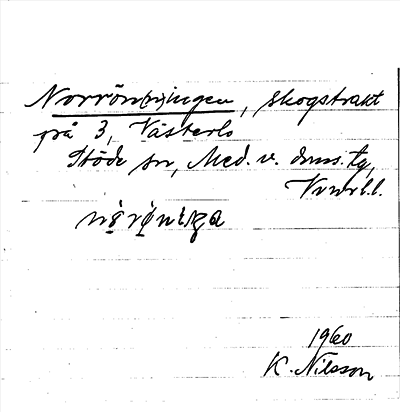 Norrön(n)ingen, skogstrakt
på 3, Västerlo
Stöde sn, Med. v. doms. tg,
Vnorl.l.
1960
K. Nilsson